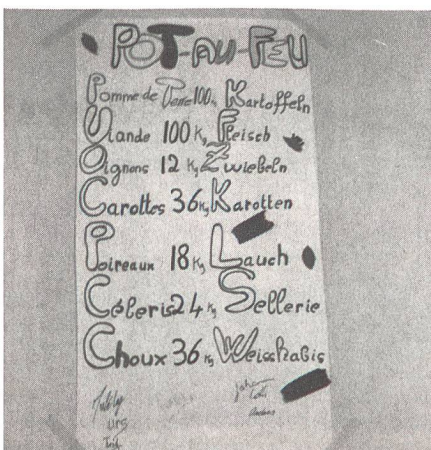 POT-AU-FEU
Pomme de Terre 100 Kg Kartoffeln
Viande 100 Kg Fleisch
Oignons 12 Kg Zwiebeln
Carottes 36 Kg Karotten
Poireaux 18 Kg Lauch
Céleris 24 Kg Sellerie
Choux 36 Kg Weisskabis
Urs